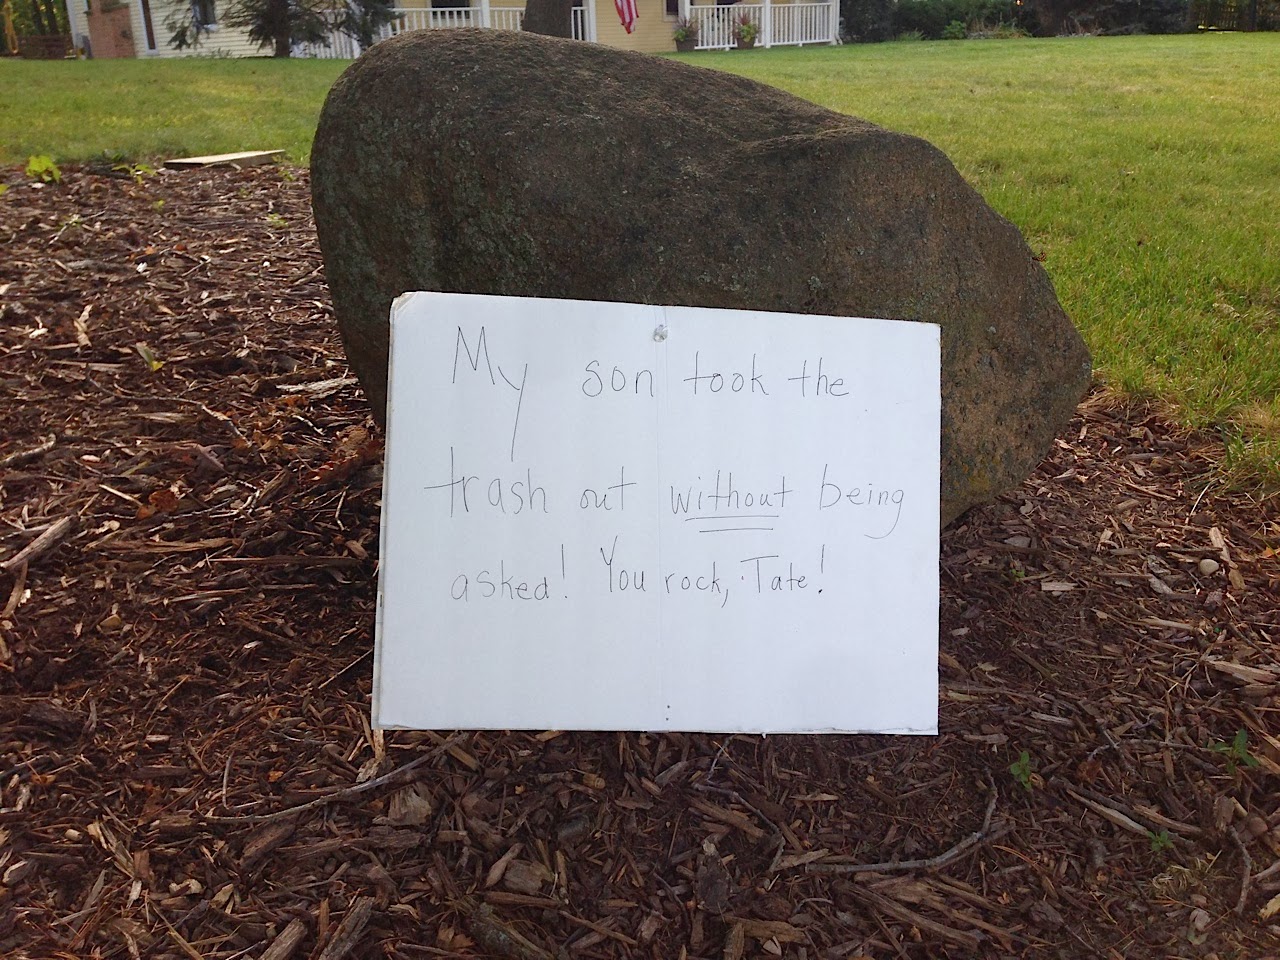 My son took the
trash out without being
asked! You rock, Tate!